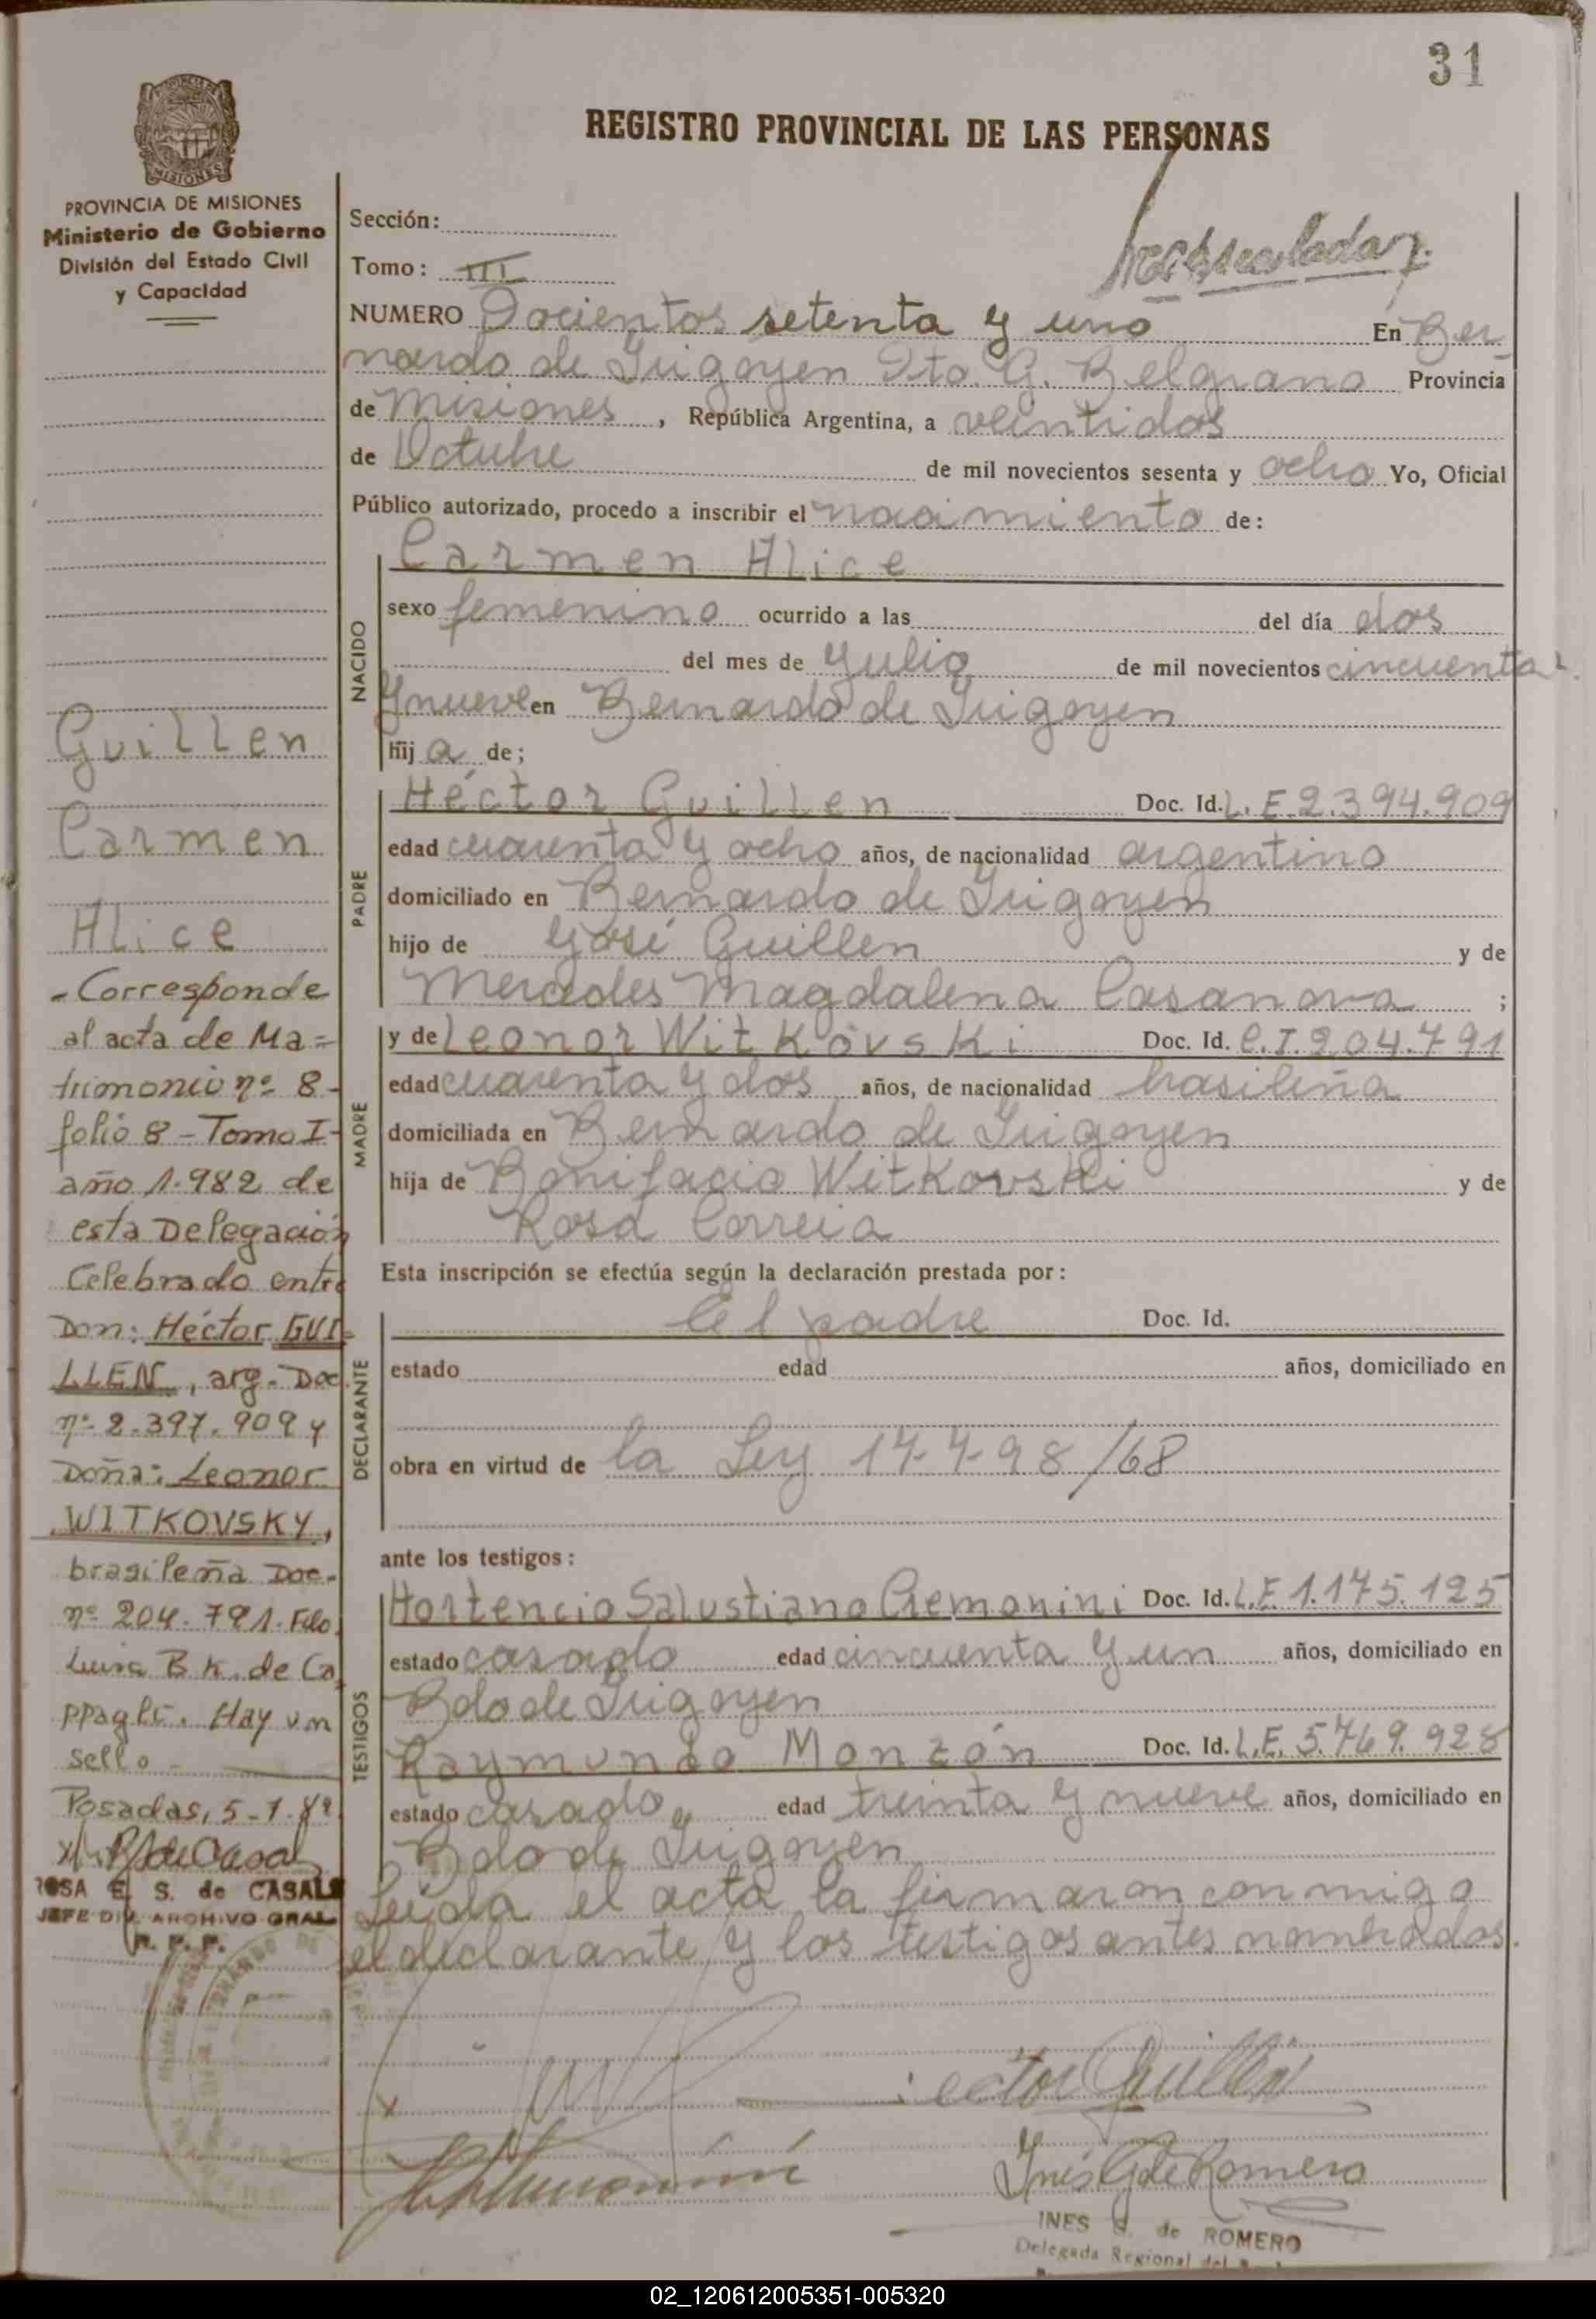 31
REGISTRO PROVINCIAL DE LAS PERSONAS
PROVINCIA DE MISIONES
Ministerio de Gobierno
División del Estado Civil
y Capacidad
Sección:
Tomo: III
NUMERO Docientos setenta y uno En Ber
nardo de Irigoyen Dto. G. Belgrano Provincia
de Misiones, República Argentina, a veintidos
de Octubre de mil novecientos sesenta y ocho Yo, Oficial
Público autorizado, procedo a inscribir el nacimiento de:
NACIDO
Carmen Alice
sexo femenino ocurrido a las del día dos
del mes de Julio de mil novecientos cincuenta
y nueve en Bernardo de Irigoyen
hij a de;
PADRE
Héctor Guillen Doc. Id. L.E. 2.394.909
edad cuarenta y ocho años, de nacionalidad argentino
domiciliado en Bernardo de Irigoyen
hijo de José Guillen y de
Mercedes Magdalena Casanova ;
MADRE
y de Leonor Witkovski Doc. Id. C.I. 204.791
edad cuarenta y dos años, de nacionalidad brasileña
domiciliada en Bernardo de Irigoyen
hija de Bonifacio Witkovski y de
Rosa Correia
Esta inscripción se efectúa según la declaración prestada por:
DECLARANTE
el padre Doc. Id.
estado edad años, domiciliado en
obra en virtud de la Ley 17.498/68
ante los testigos:
TESTIGOS
Hortencio Salustiano Cremonini Doc. Id. L.E. 1.175.125
estado casado edad cincuenta y un años, domiciliado en
Bdo de Irigoyen
Raymundo Monzón Doc. Id. L.E. 5.769.928
estado casado edad treinta y nueve años, domiciliado en
Bdo de Irigoyen
Leída el acta la firmaron conmigo
el declarante y los testigos antes nombrados.
Guillen
Carmen
Alice
- Corresponde
al acta de Ma=
trimonio nº 8-
folio 8 - Tomo I-
año 1.982 de
esta Delegación
Celebrado entre
Don: Héctor GUI=
LLEN, arg. Doc.
nº 2.397.909 y
Doña: Leonor
WITKOVSKY,
brasileña Doc.
nº 204.791. Fdo.
Luisa B K. de Ca
ppagli. Hay un
sello
Posadas, 5-1-
ROSA E. S. de CASALS
JEFE DIV. ARCHIVO GRAL
R. P. P.
Hector Guillen
Inés G de Romero
INES G. de ROMERO
Delegada Regional del
02_120612005351-005320